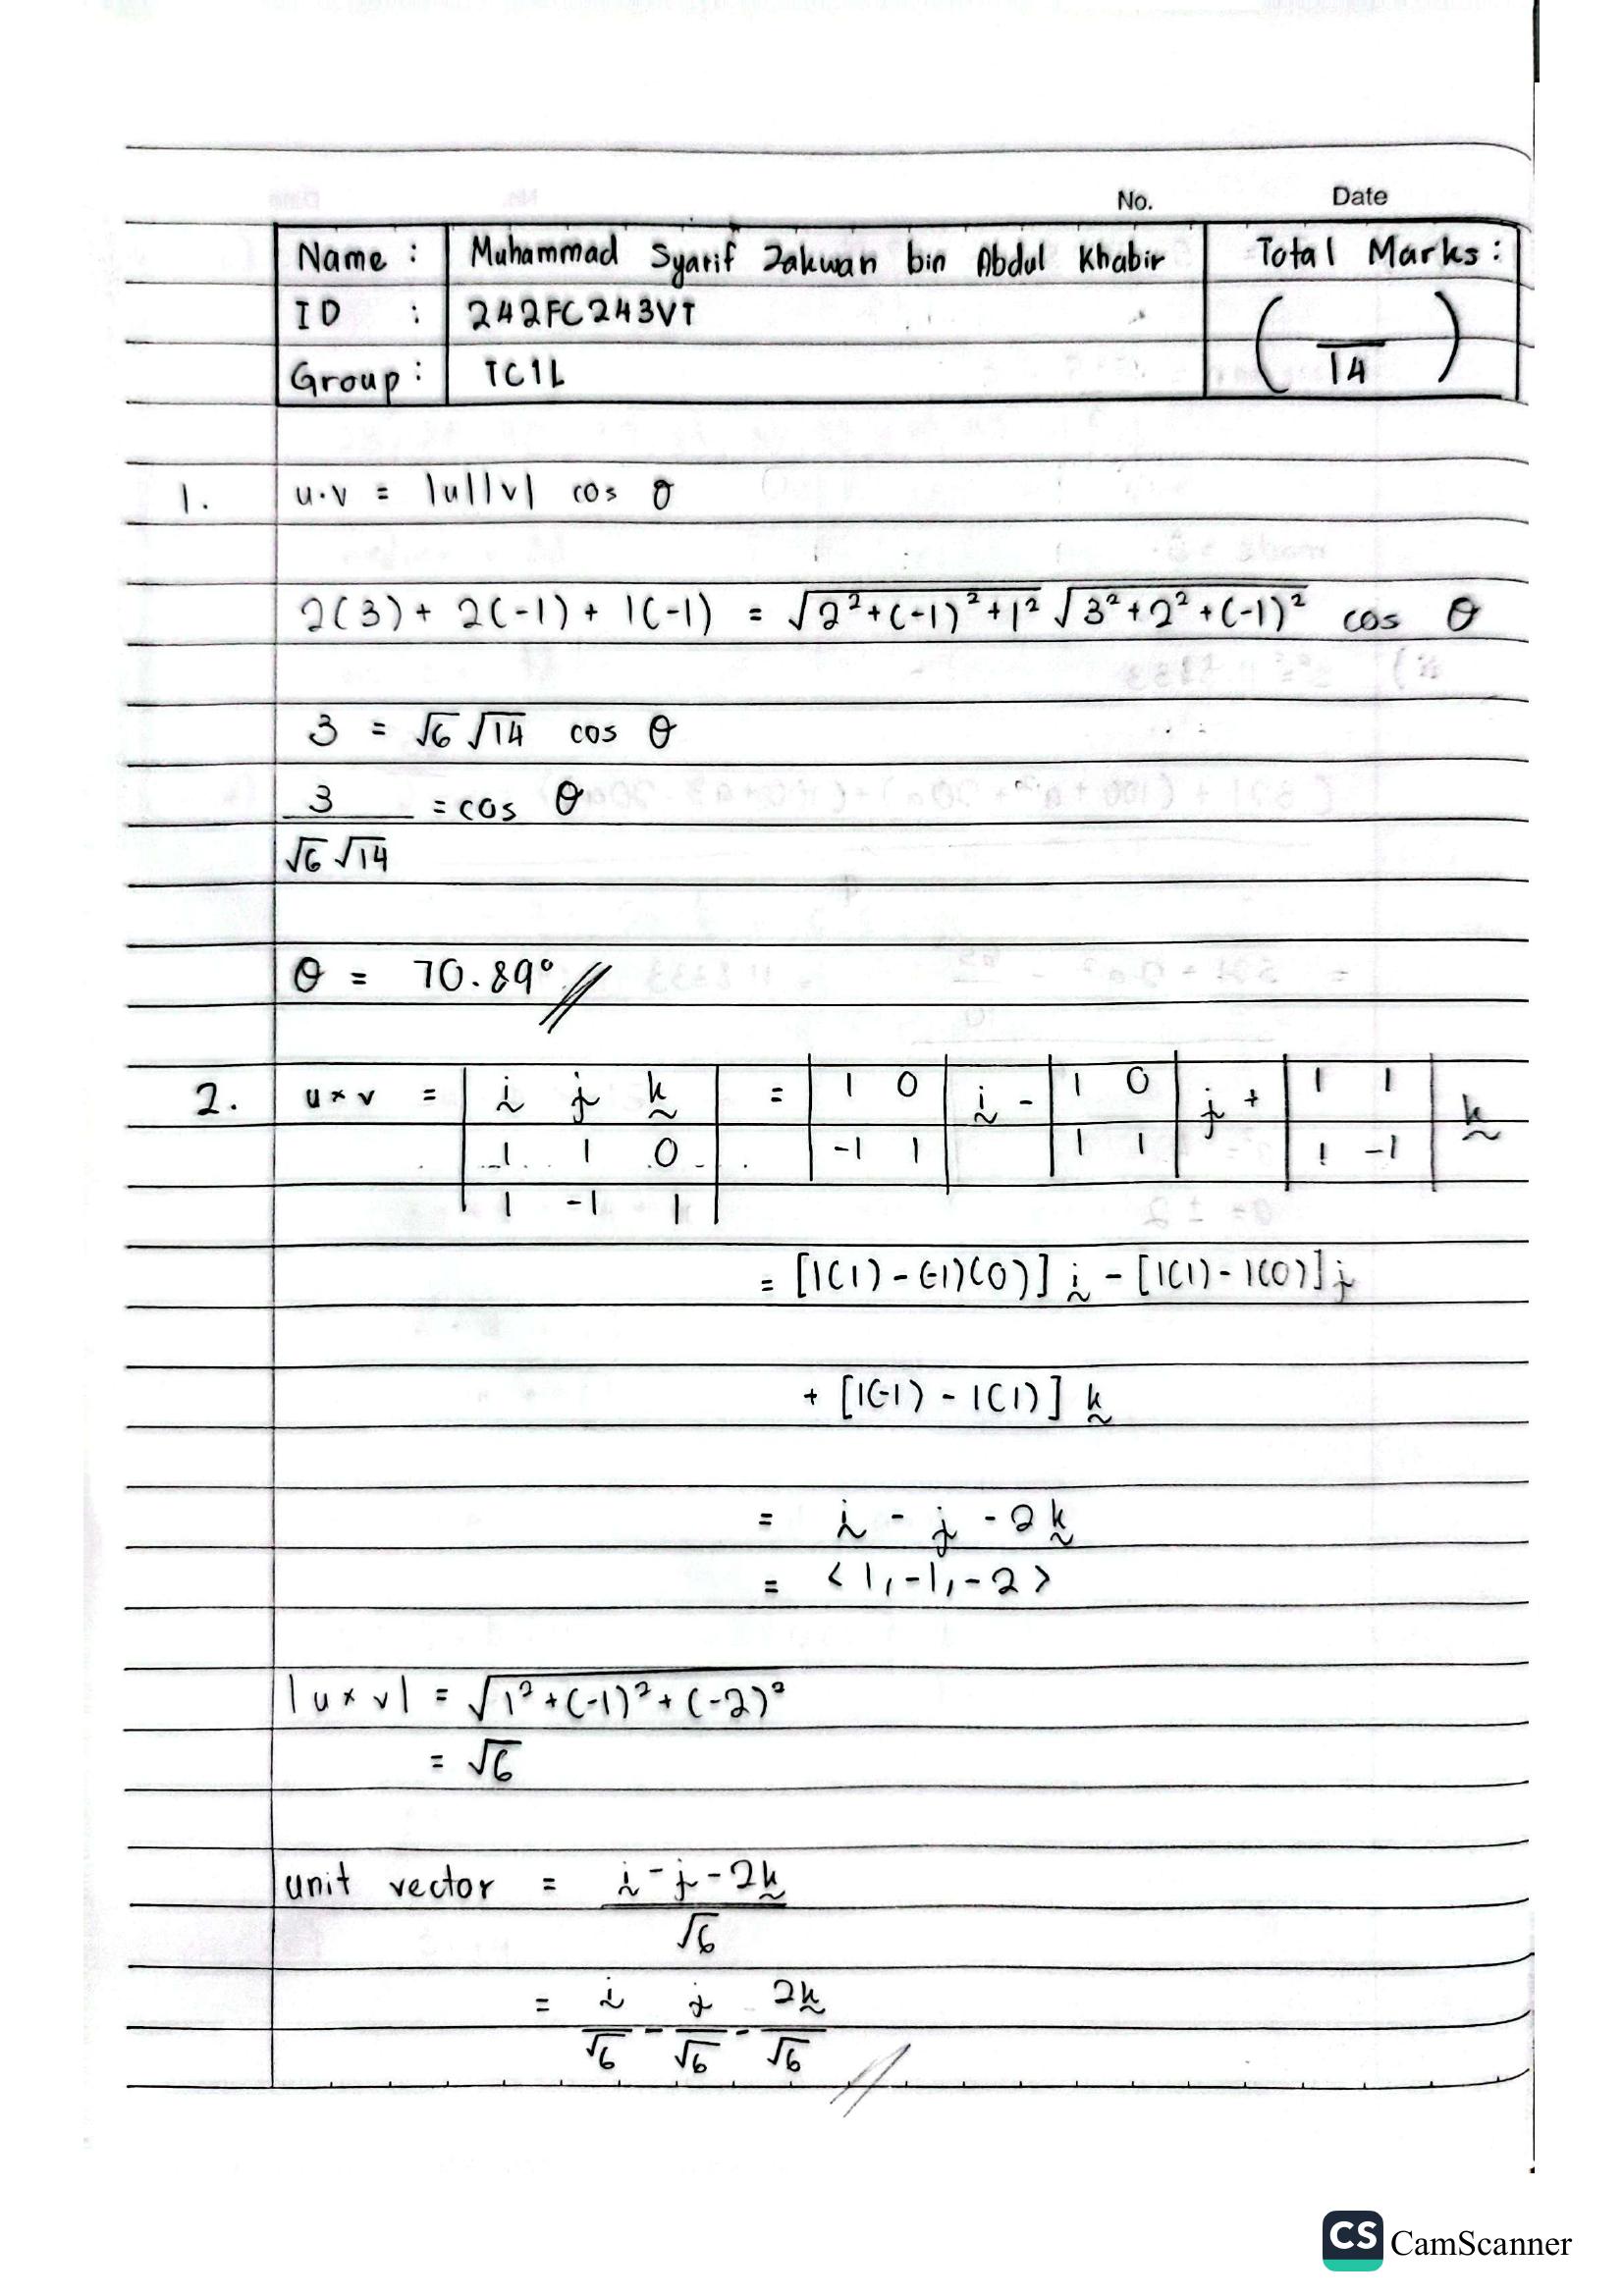 No. Date
Name : Muhammad Syarif Zakwan bin Abdul Khabir Total Marks :
ID : 242FC243VT ( /14 )
Group : TC1L
1. u·v = |u||v| cos θ
2(3) + 2(-1) + 1(-1) = √(2²+(-1)²+1²) √(3²+2²+(-1)²) cos θ
3 = √6 √14 cos θ
3/(√6 √14) = cos θ
θ = 70.89° //
2. u × v = | i j k | = | 1 0 | i - | 1 0 | j + | 1 1 | k
| 1 1 0 | | -1 1 | | 1 1 | | 1 -1 |
| 1 -1 1 |
= [1(1) - (-1)(0)] i - [1(1) - 1(0)] j
+ [1(-1) - 1(1)] k
= i - j - 2k
= < 1, -1, -2 >
|u × v| = √(1² + (-1)² + (-2)²)
= √6
unit vector = (i - j - 2k)/√6
= i/√6 - j/√6 - 2k/√6 //
CS CamScanner